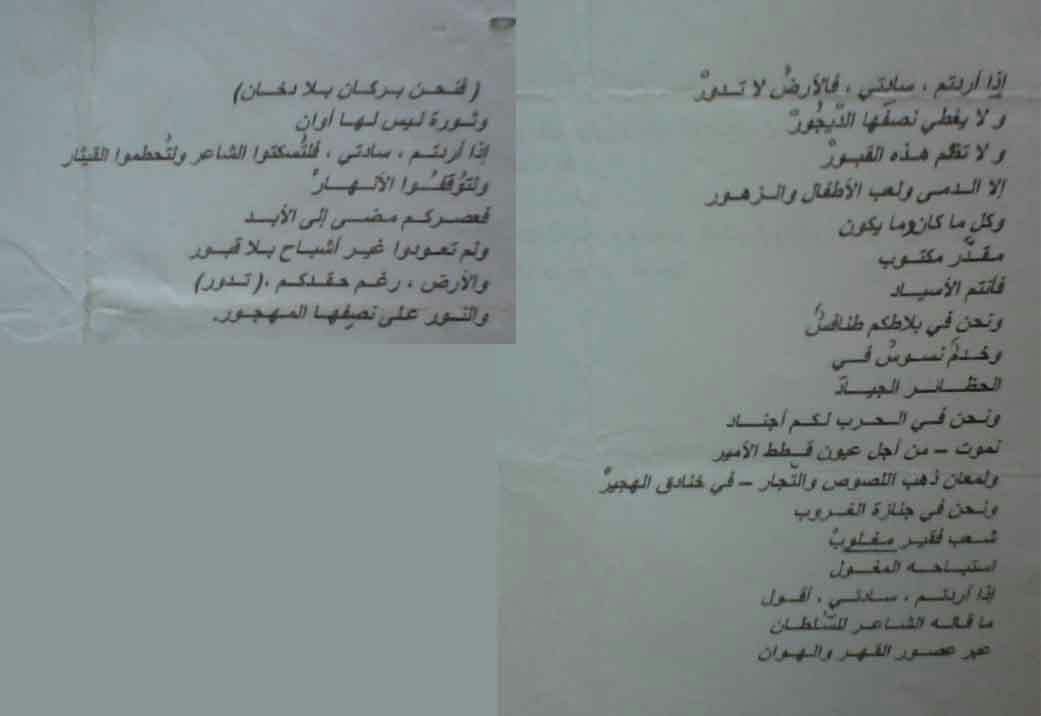 إذا أردتم ، سادتي ، فالأرضُ لا تدورْ
و لا يغطي نصفَها الدّيجُورْ
و لا تضُم هذه القبورْ
إلا الدمى ولعب الأطفال والزهور
وكل ما كان وما يكون
مقدّر مكتوب
فأنتم الأسياد
ونحن في بلاطكم طنافسٌ
وخدمٌ نسوسُ في
الحظائر الجيادْ
ونحن في الحرب لكم أجناد
نموت – من أجل عيون قطط الأمير
ولمعان ذهب اللصوص والتّجار – في خنادق الهجيرْ
ونحن في جنازة الغروب
شعب فقير مغلوبْ
استباحه المغول
إذا أردتم ، سادتي ، أقول
ما قاله الشاعر للسّلطان
عبر عصور القهر والهوان
( فنحن بركان بلا دخان)
وثورة ليس لها أوان
إذا أردتم ، سادتي ، فلتُسكتوا الشاعر ولتُحطموا القيثار
ولتوُقفُوا الأنهارْ
فعصركم مضى إلى الأبد
ولم تعودوا غير أشباح بلا قبور
والأرض ، رغم حقدكم ،( تدور)
والنور على نصفِها المهجور.